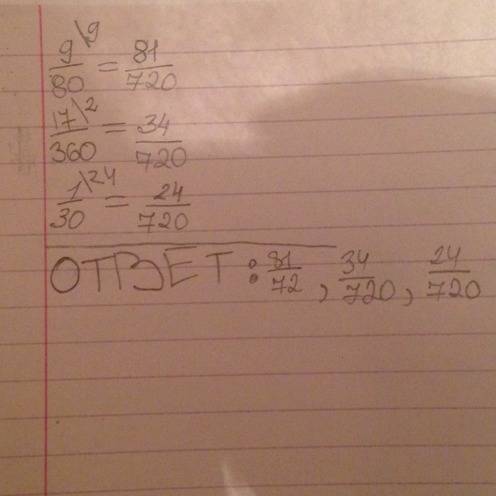 9/80 \9 = 81/720
17/360 \2 = 34/720
1/30 \24 = 24/720
ОТВЕТ: 81/72, 34/720, 24/720